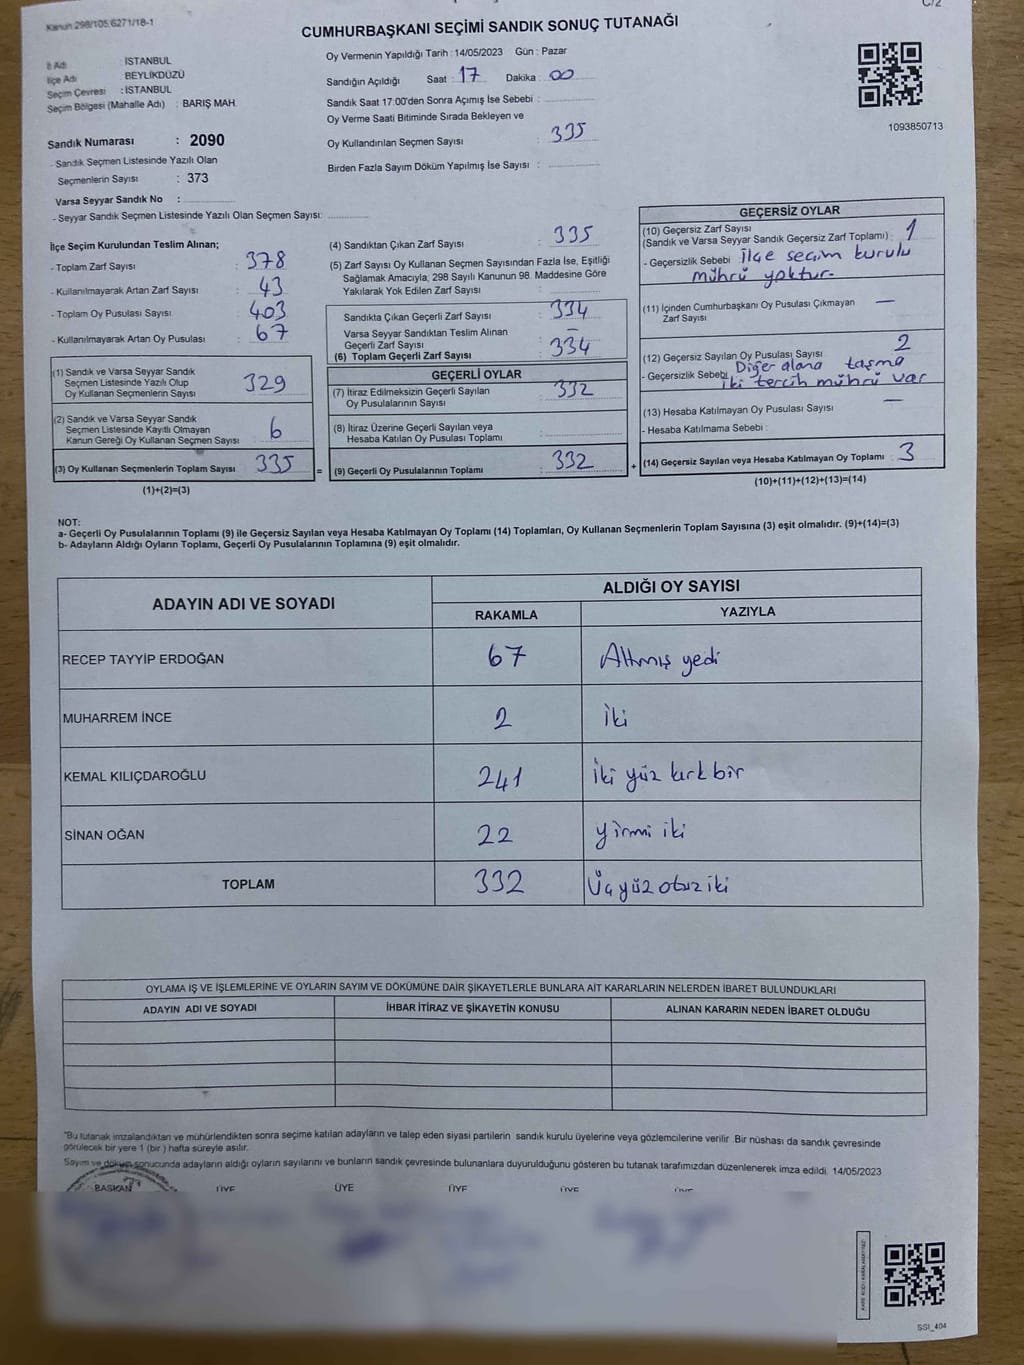 Kanun 298/105;6271/18-1
C/2
CUMHURBAŞKANI SEÇİMİ SANDIK SONUÇ TUTANAĞI
İl Adı : İSTANBUL
İlçe Adı : BEYLİKDÜZÜ
Seçim Çevresi : İSTANBUL
Seçim Bölgesi (Mahalle Adı) : BARIŞ MAH.
Sandık Numarası : 2090
- Sandık Seçmen Listesinde Yazılı Olan
Seçmenlerin Sayısı : 373
Varsa Seyyar Sandık No :
- Seyyar Sandık Seçmen Listesinde Yazılı Olan Seçmen Sayısı:
Oy Vermenin Yapıldığı Tarih : 14/05/2023 Gün : Pazar
Sandığın Açıldığı Saat : 17 Dakika : 00
Sandık Saat 17:00'den Sonra Açımış İse Sebebi :
Oy Verme Saati Bitiminde Sırada Bekleyen ve
Oy Kullandırılan Seçmen Sayısı : 335
Birden Fazla Sayım Döküm Yapılmış İse Sayısı :
1093850713
İlçe Seçim Kurulundan Teslim Alınan;
- Toplam Zarf Sayısı : 378
- Kullanılmayarak Artan Zarf Sayısı : 43
- Toplam Oy Pusulası Sayısı : 403
- Kullanılmayarak Artan Oy Pusulası : 67
(1) Sandık ve Varsa Seyyar Sandık
Seçmen Listesinde Yazılı Olup
Oy Kullanan Seçmenlerin Sayısı : 329
(2) Sandık ve Varsa Seyyar Sandık
Seçmen Listesinde Kayıtlı Olmayan
Kanun Gereği Oy Kullanan Seçmen Sayısı : 6
(3) Oy Kullanan Seçmenlerin Toplam Sayısı : 335
(1)+(2)=(3)
(4) Sandıktan Çıkan Zarf Sayısı : 335
(5) Zarf Sayısı Oy Kullanan Seçmen Sayısından Fazla İse, Eşitliği
Sağlamak Amacıyla; 298 Sayılı Kanunun 98. Maddesine Göre
Yakılarak Yok Edilen Zarf Sayısı :
Sandıkta Çıkan Geçerli Zarf Sayısı : 334
Varsa Seyyar Sandıktan Teslim Alınan
Geçerli Zarf Sayısı : –
(6) Toplam Geçerli Zarf Sayısı : 334
GEÇERLİ OYLAR
(7) İtiraz Edilmeksizin Geçerli Sayılan
Oy Pusulalarının Sayısı : 332
(8) İtiraz Üzerine Geçerli Sayılan veya
Hesaba Katılan Oy Pusulası Toplamı :
= (9) Geçerli Oy Pusulalarının Toplamı : 332 +
GEÇERSİZ OYLAR
(10) Geçersiz Zarf Sayısı
(Sandık ve Varsa Seyyar Sandık Geçersiz Zarf Toplamı) : 1
- Geçersizlik Sebebi : İlçe seçim kurulu
mührü yoktur.
(11) İçinden Cumhurbaşkanı Oy Pusulası Çıkmayan
Zarf Sayısı : —
(12) Geçersiz Sayılan Oy Pusulası Sayısı : 2
- Geçersizlik Sebebi : Diğer alana taşma
iki tercih mührü var
(13) Hesaba Katılmayan Oy Pusulası Sayısı : —
- Hesaba Katılmama Sebebi :
(14) Geçersiz Sayılan veya Hesaba Katılmayan Oy Toplamı : 3
(10)+(11)+(12)+(13)=(14)
NOT:
a- Geçerli Oy Pusulalarının Toplamı (9) ile Geçersiz Sayılan veya Hesaba Katılmayan Oy Toplamı (14) Toplamları, Oy Kullanan Seçmenlerin Toplam Sayısına (3) eşit olmalıdır. (9)+(14)=(3)
b- Adayların Aldığı Oyların Toplamı, Geçerli Oy Pusulalarının Toplamına (9) eşit olmalıdır.
ADAYIN ADI VE SOYADI
ALDIĞI OY SAYISI
RAKAMLA YAZIYLA
RECEP TAYYİP ERDOĞAN 67 Altmış yedi
MUHARREM İNCE 2 İki
KEMAL KILIÇDAROĞLU 241 İki yüz kırk bir
SİNAN OĞAN 22 yirmi iki
TOPLAM 332 Üç yüz otuz iki
OYLAMA İŞ VE İŞLEMLERİNE VE OYLARIN SAYIM VE DÖKÜMÜNE DAİR ŞİKAYETLERLE BUNLARA AİT KARARLARIN NELERDEN İBARET BULUNDUKLARI
ADAYIN ADI VE SOYADI İHBAR İTİRAZ VE ŞİKAYETİN KONUSU ALINAN KARARIN NEDEN İBARET OLDUĞU
*Bu tutanak imzalandıktan ve mühürlendikten sonra seçime katılan adayların ve talep eden siyasi partilerin sandık kurulu üyelerine veya gözlemcilerine verilir. Bir nüshası da sandık çevresinde
görülecek bir yere 1 (bir) hafta süreyle asılır.
Sayım ve döküm sonucunda adayların aldığı oyların sayılarını ve bunların sandık çevresinde bulunanlara duyurulduğunu gösteren bu tutanak tarafımızdan düzenlenerek imza edildi. 14/05/2023
BAŞKAN ÜYE ÜYE ÜYE ÜYE ÜYE
SSI_404